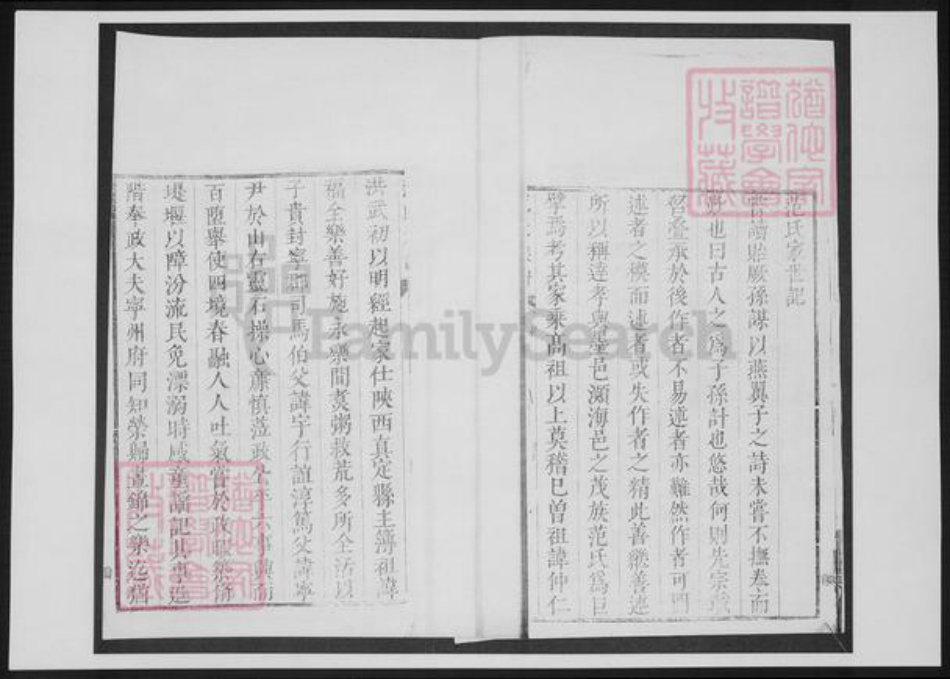 范氏家世記
嘗讀貽厥孫謀以燕翼子之詩未嘗不撫卷而
也曰古人之為子孫計也悠哉何則先宗
啓疊承於後作者不易述者亦難然作者可
述者之模而述者或失作者之精此善繼善述
所以稱達孝與墨邑瀕海邑之茂族范氏為巨
擘焉考其家乘高祖以上莫稽已曾祖諱仲仁
洪武初以明經起家仕陝西真定縣主簿祖諱
福全樂善好施永樂間煑粥救荒多所全活以
子貴封寧郡司馬伯父諱宇行誼淳篤父諱寧
尹於山右靈石操心廉慎蒞政公平六事興而
百墮舉使四境春融人人吐氣嘗於政暇築
堤堰以障汾流民免漂溺時咸童謡記其事
階奉政大夫寧州府同知榮歸晝錦之樂迄
猶他家譜學會收藏
猶他家譜學會收藏
FamilySearch